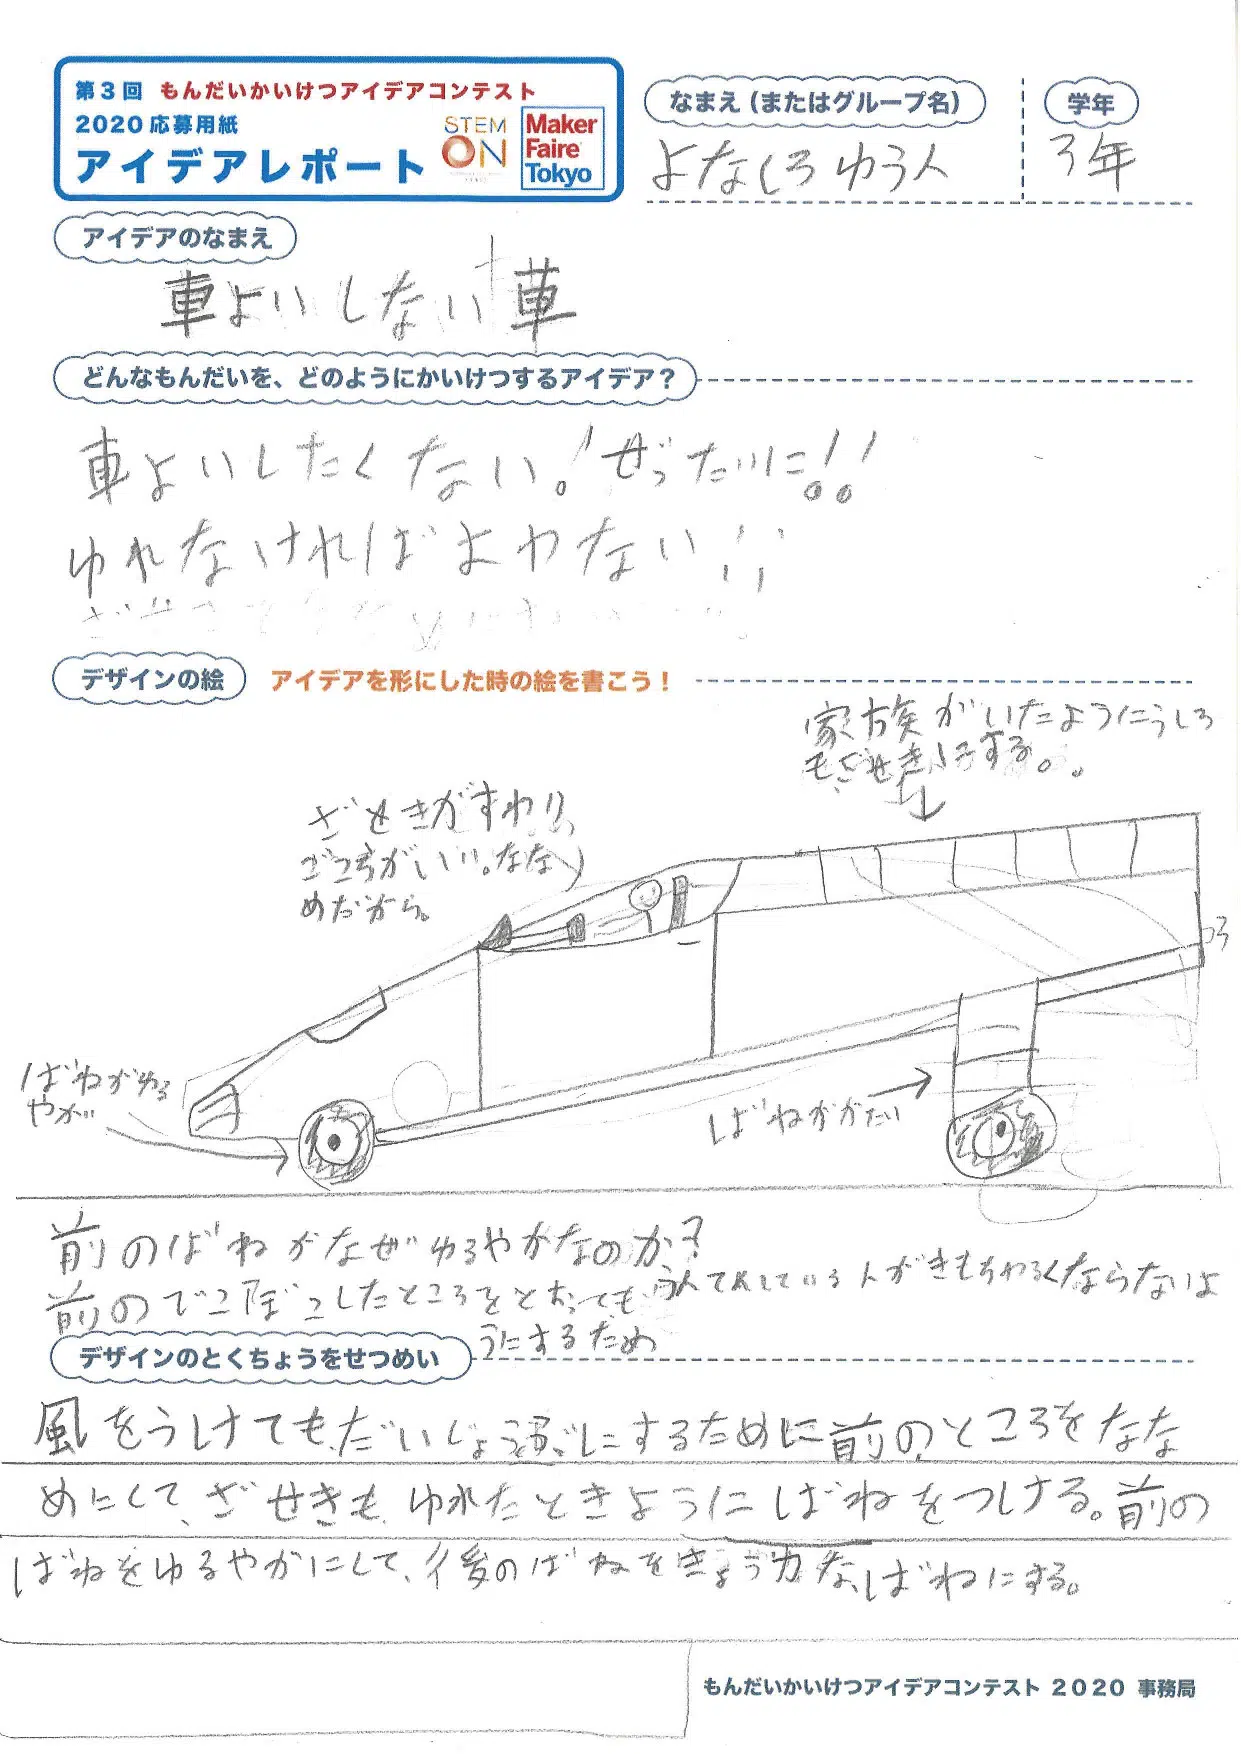 第3回 もんだいかいけつアイデアコンテスト
2020応募用紙
アイデアレポート
STEM
ON
Maker
Faire
Tokyo
なまえ(またはグループ名)
学年
よなしろ ゆう人
3年
アイデアのなまえ
車よいしない車
どんなもんだいを、どのようにかいけつするアイデア?
車よいしたくない!ぜったいに!!
ゆれなければよわない!!
デザインの絵
アイデアを形にした時の絵を書こう!
家族がいたようにうしろ
もざせきにする。
ざせきがすわり
ごこちがいい。なな
めだから。
ばねがゆる
やか
ばねがかたい
前のばねがなぜゆるやかなのか?
前のでこぼこしたところをとおっても
人がきもちわるくならないよ
うにするため
デザインのとくちょうをせつめい
風をうけてもだいじょうぶにするために前のところをなな
めにして、ざせきも、ゆれたときようにばねをつける。前の
ばねをゆるやかにして、後のばねをきょう力な、ばねにする。
もんだいかいけつアイデアコンテスト 2020 事務局